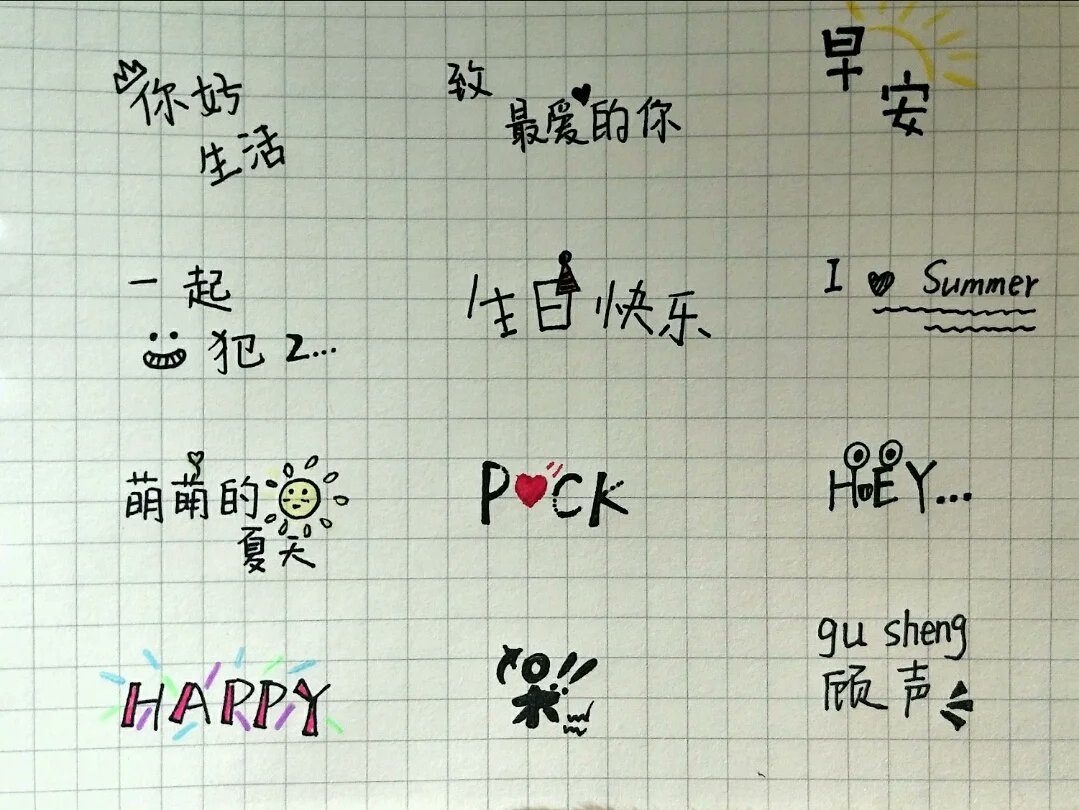 你好
生活
致
最爱的你
早
安
一起
犯2...
生日快乐
I ♥ Summer
萌萌的
夏天
P♥CK
HEY...
HAPPY
呆!!
gu sheng
顾声